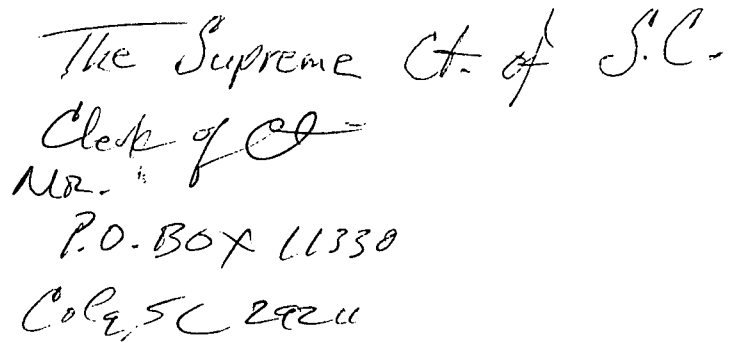 The Supreme Ct. of S.C.
Clerk of Ct
Mr.
P.O. BOX 11330
Cola, SC 29211